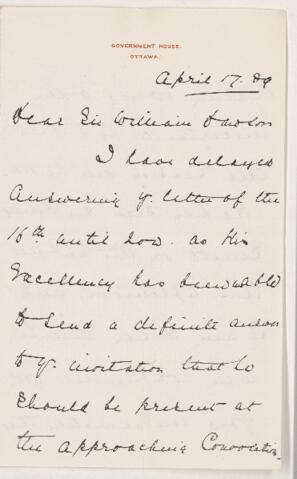 GOVERNMENT HOUSE.
OTTAWA.
April 17. 89
Dear Sir William Dawson
I have delayed
Answering yr. letter of the
16th until now. as His
Excellency has been unable
to send a definite answer
to yr. invitation that he
should be present at
the approaching Convocation.